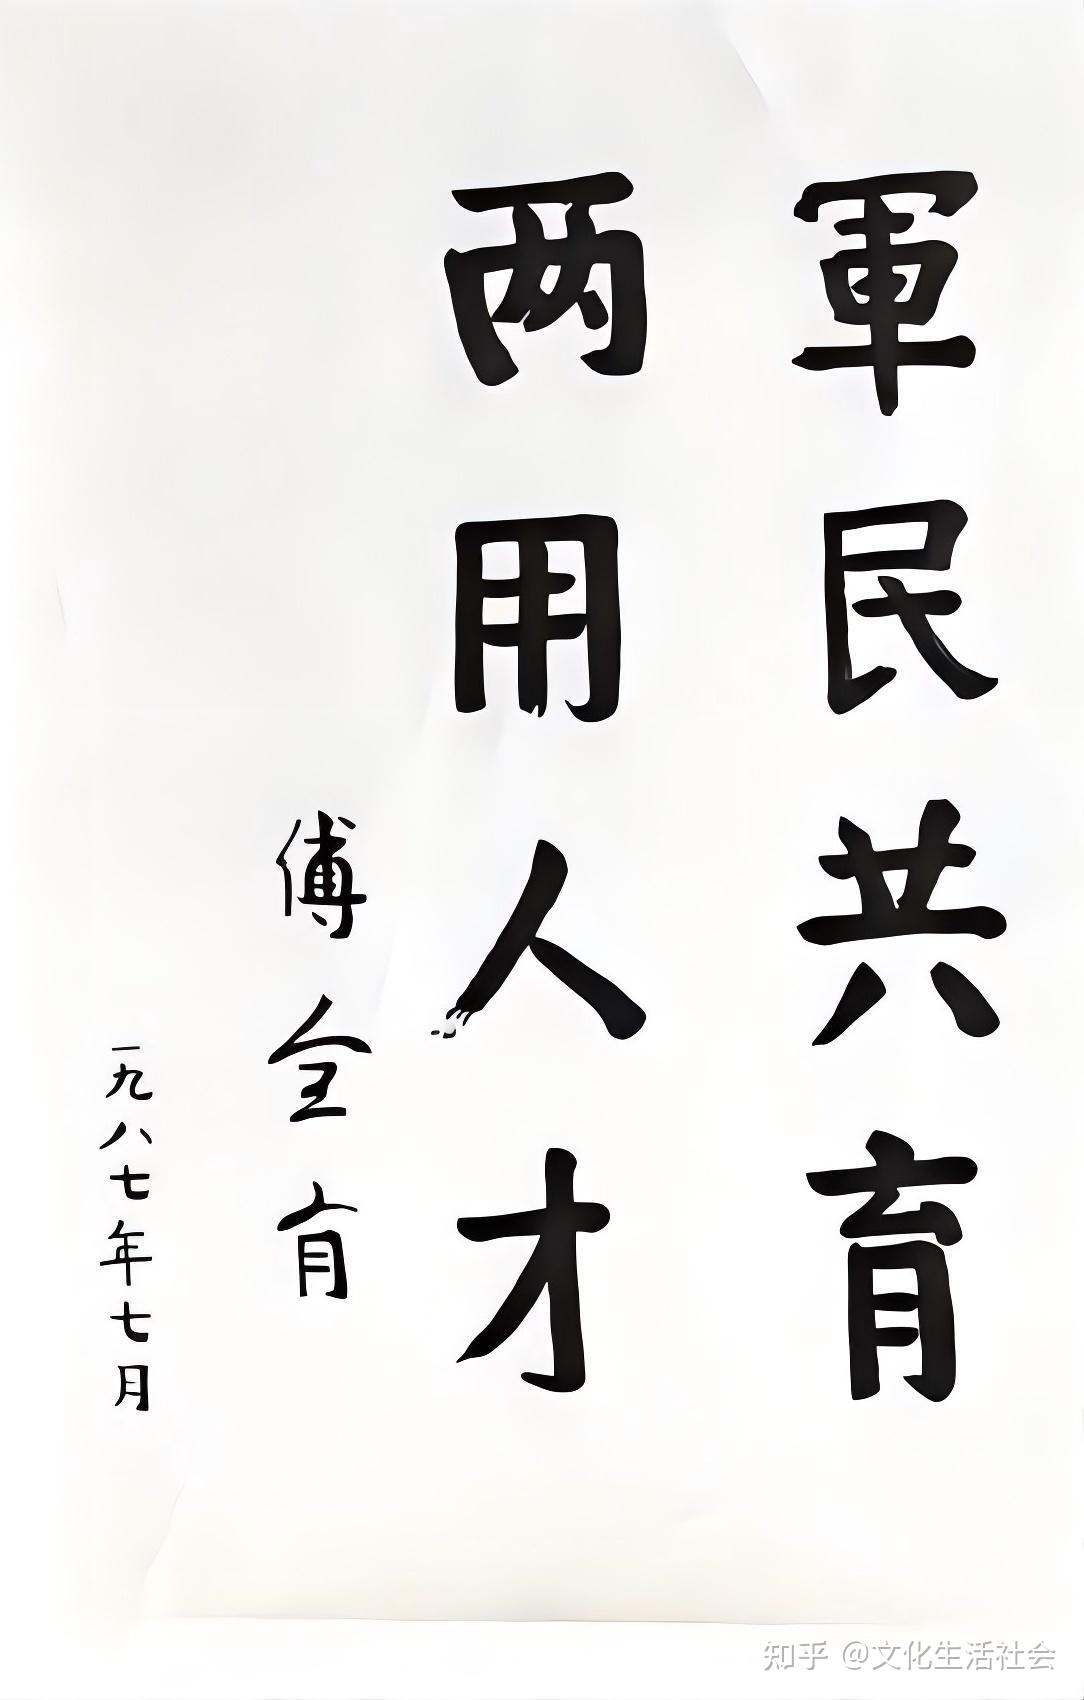 軍民共育
两用人才
傅全有
一九八七年七月
知乎 @文化生活社会